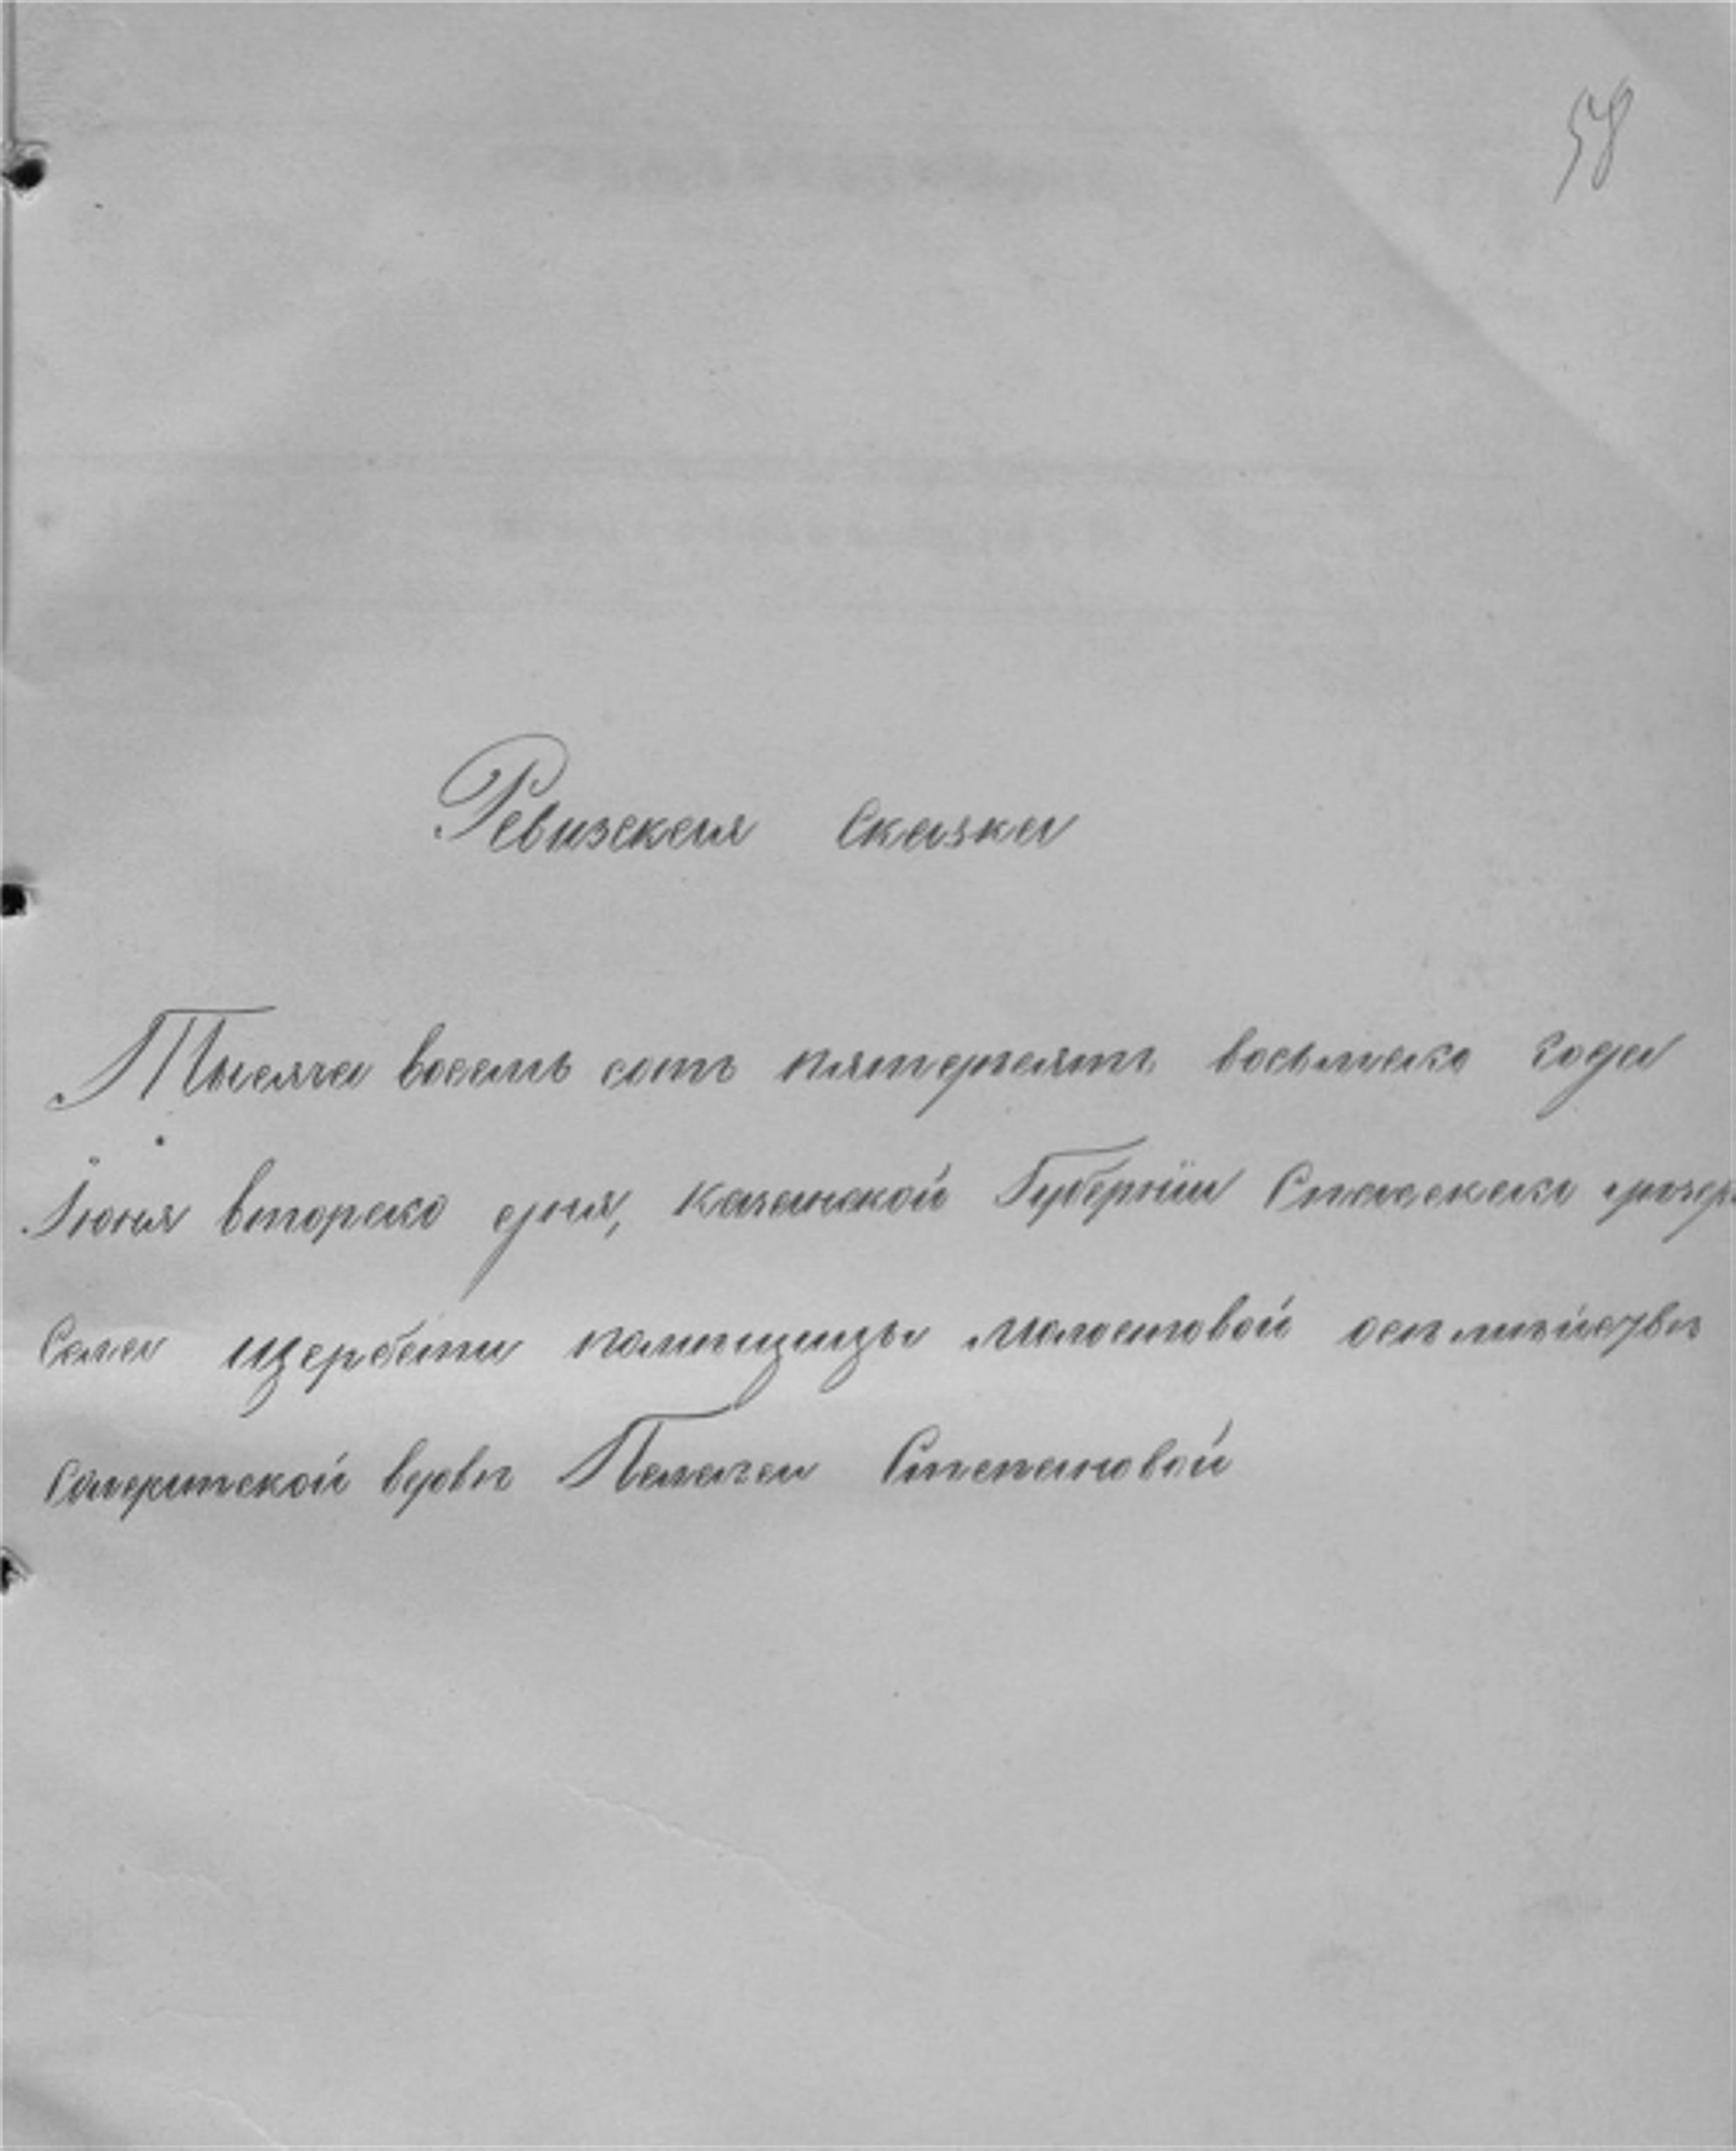 58
Ревизская Сказка
Тысяча восемь сотъ пятьдесятъ восьмаго года
Іюня втораго дня, Казанской Губерніи Спасскаго уезд
Села Щербети помещицы Молостовой
Солдатской вдовѣ Пелагеи Степановой